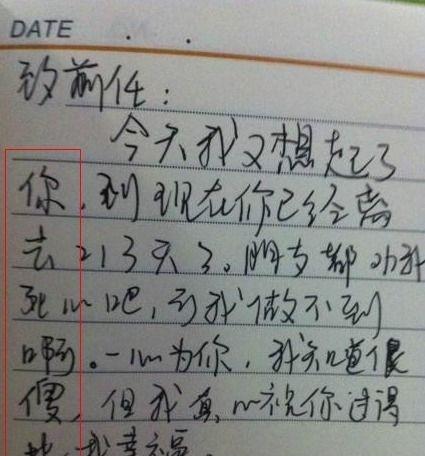 DATE
致前任：
今天我又想起了
你，到现在你已经离
去213天了。朋友都劝我
死心吧，可我做不到
啊。一心为你，我知道很
傻，但我真心祝你过得
比我幸福。